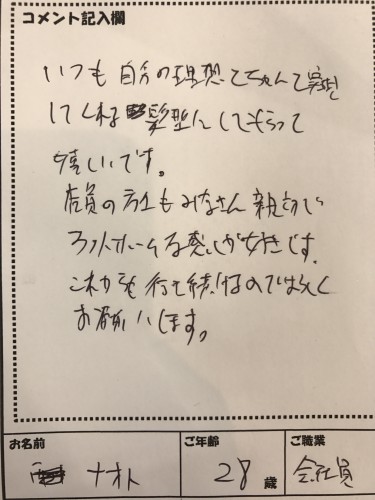 コメント記入欄
いつも自分の理想とちゃんて実現
してくれる髪型にしてもらって
嬉しいです。
店員の方もみなさん親切で
アットホームな感じが好きです。
これからも行き続けるのでよろしく
お願いします。
お名前
ナオト
ご年齢
28歳
ご職業
会社員